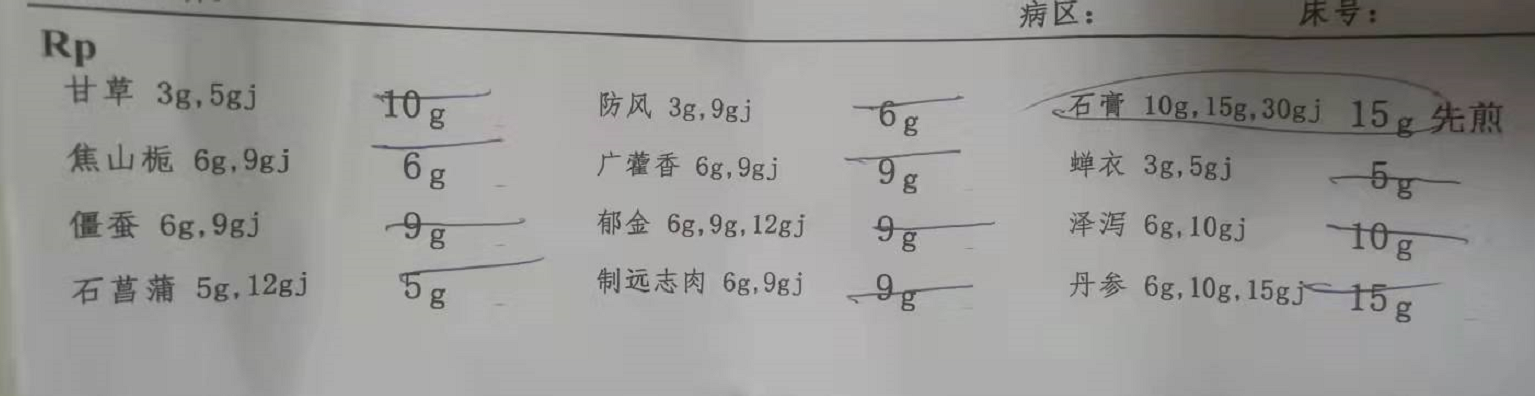 病区： 床号：
Rp
甘草 3g,5gj 10g 防风 3g,9gj 6g 石膏 10g,15g,30gj 15g 先煎
焦山栀 6g,9gj 6g 广藿香 6g,9gj 9g 蝉衣 3g,5gj 5g
僵蚕 6g,9gj 9g 郁金 6g,9g,12gj 9g 泽泻 6g,10gj 10g
石菖蒲 5g,12gj 5g 制远志肉 6g,9gj 9g 丹参 6g,10g,15gj 15g